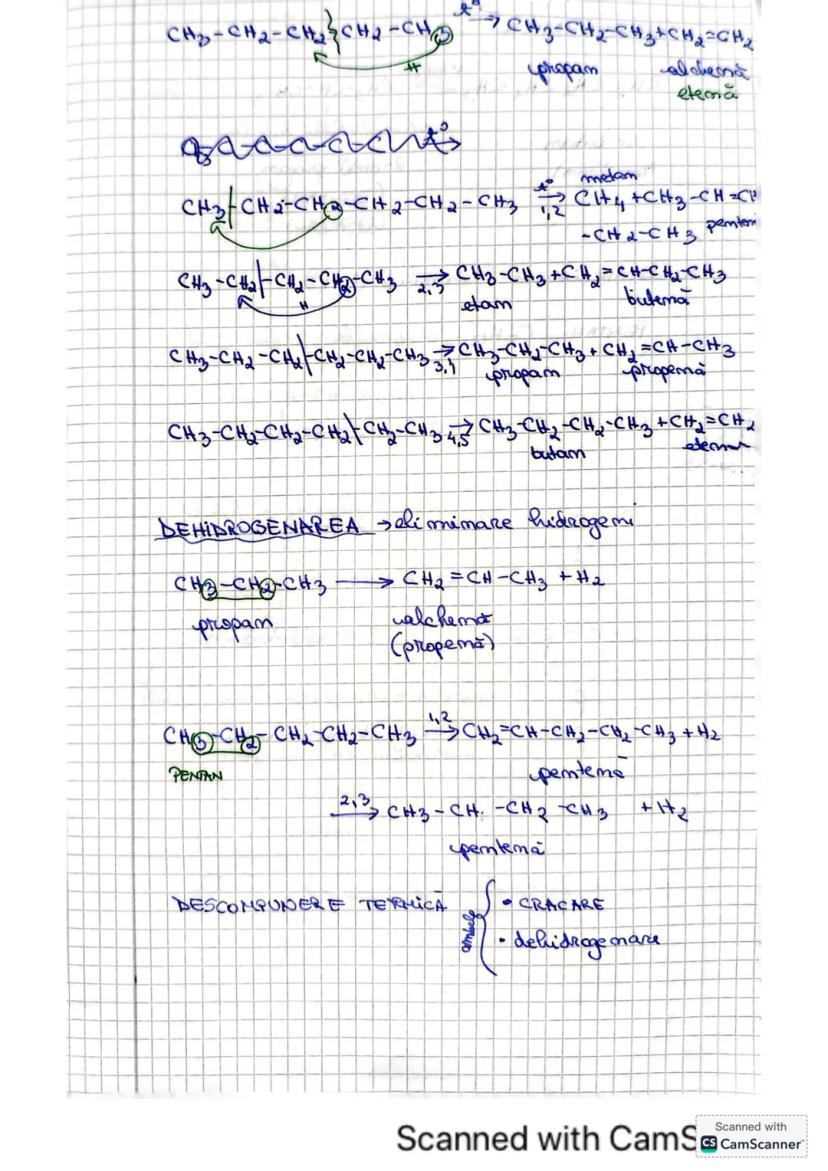 CH3-CH2-CH2 CH2-CH3 t° → CH3-CH2-CH3+CH2=CH2
H
propan alchenă
etenă
t° →
metan
CH3-CH2-CH2-CH2-CH2-CH3 t° → 1,2 CH4+CH3-CH=CH
-CH2-CH3
CH3-CH2-CH2-CH2-CH3 → 2,3 CH3-CH3+CH2=CH-CH2-CH3
H
etan butenă
CH3-CH2-CH2-CH2-CH2-CH3 → 3,4 CH3-CH2-CH3+CH2=CH-CH3
propan propenă
CH3-CH2-CH2-CH2-CH2-CH3 → 4,5 CH3-CH2-CH2-CH3+CH2=CH2
butan
DEHIDROGENAREA → eliminare hidrogeni
CH3-CH2-CH3 → CH2=CH-CH3+H2
propan alchenă
(propenă)
CH3-CH2-CH2-CH2-CH3 1,2 → CH2=CH-CH2-CH2-CH3+H2
PENTAN pentenă
2,3 → CH3-CH -CH2-CH3 +H2
pentenă
DESCOMPUNERE TERMICĂ ambele { • CRACARE
• dehidrogenare
Scanned with CamS
Scanned with
CS CamScanner